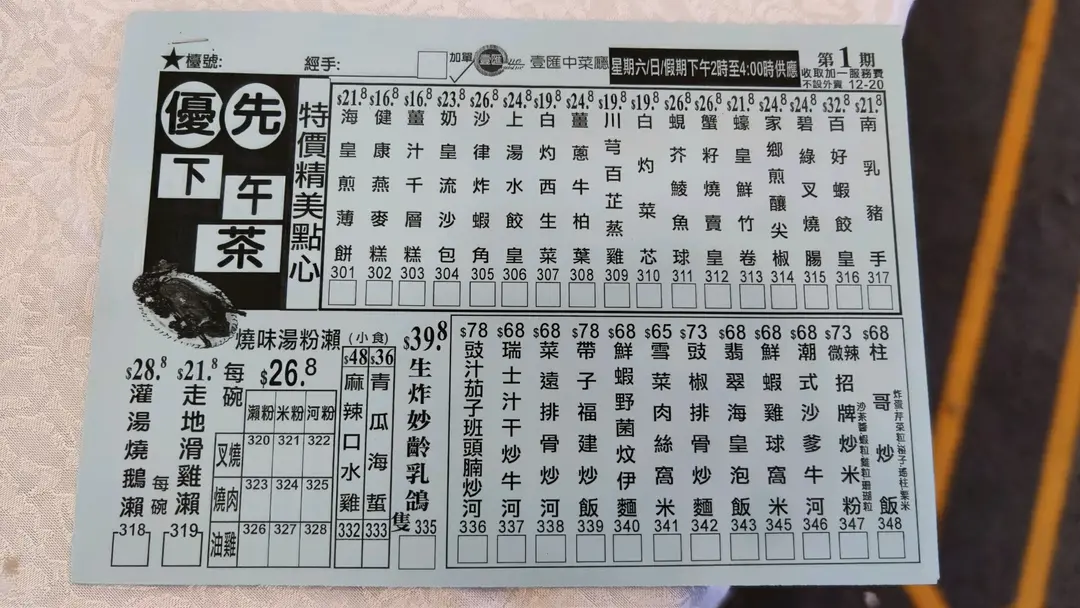 ★檯號:
經手:
加單
壹滙
壹匯中菜廳
星期六/日/假期下午2時至4:00時供應
第1期
收取加一服務費
不設外賣 12-20
優先
下午茶
特價精美點心
$21.8 海皇煎薄餅 301
$16.8 健康燕麥糕 302
$16.8 薑汁千層糕 303
$23.8 奶皇流沙包 304
$26.8 沙律炸蝦角 305
$24.8 上湯水餃皇 306
$19.8 白灼西生菜 307
$24.8 薑蔥牛柏葉 308
$19.8 川芎百芷蒸雞 309
$19.8 白灼菜芯 310
$26.8 蜆芥鯪魚球 311
$26.8 蟹籽燒賣皇 312
$21.8 蠔皇鮮竹卷 313
$24.8 家鄉煎釀尖椒 314
$24.8 碧綠叉燒腸 315
$32.8 百好蝦餃皇 316
$21.8 南乳豬手 317
燒味湯粉瀨
$28.8 灌湯燒鵝瀨 每碗 318
$21.8 走地滑雞瀨 319
每碗 $26.8
瀨粉 米粉 河粉
叉燒 320 321 322
燒肉 323 324 325
油雞 326 327 328
(小食)
$48 麻辣口水雞 332
$36 青瓜海蜇 333
$39.8 生炸妙齡乳鴿 隻 335
$78 豉汁茄子班頭腩炒河 336
$68 瑞士汁干炒牛河 337
$68 菜遠排骨炒河 338
$78 帶子福建炒飯 339
$68 鮮蝦野菌炆伊麵 340
$65 雪菜肉絲窩米 341
$73 豉椒排骨炒麵 342
$68 翡翠海皇泡飯 343
$68 鮮蝦雞球窩米 345
$68 潮式沙爹牛河 346
$73 微辣招牌炒米粉 347
$68 柱哥炒飯 348